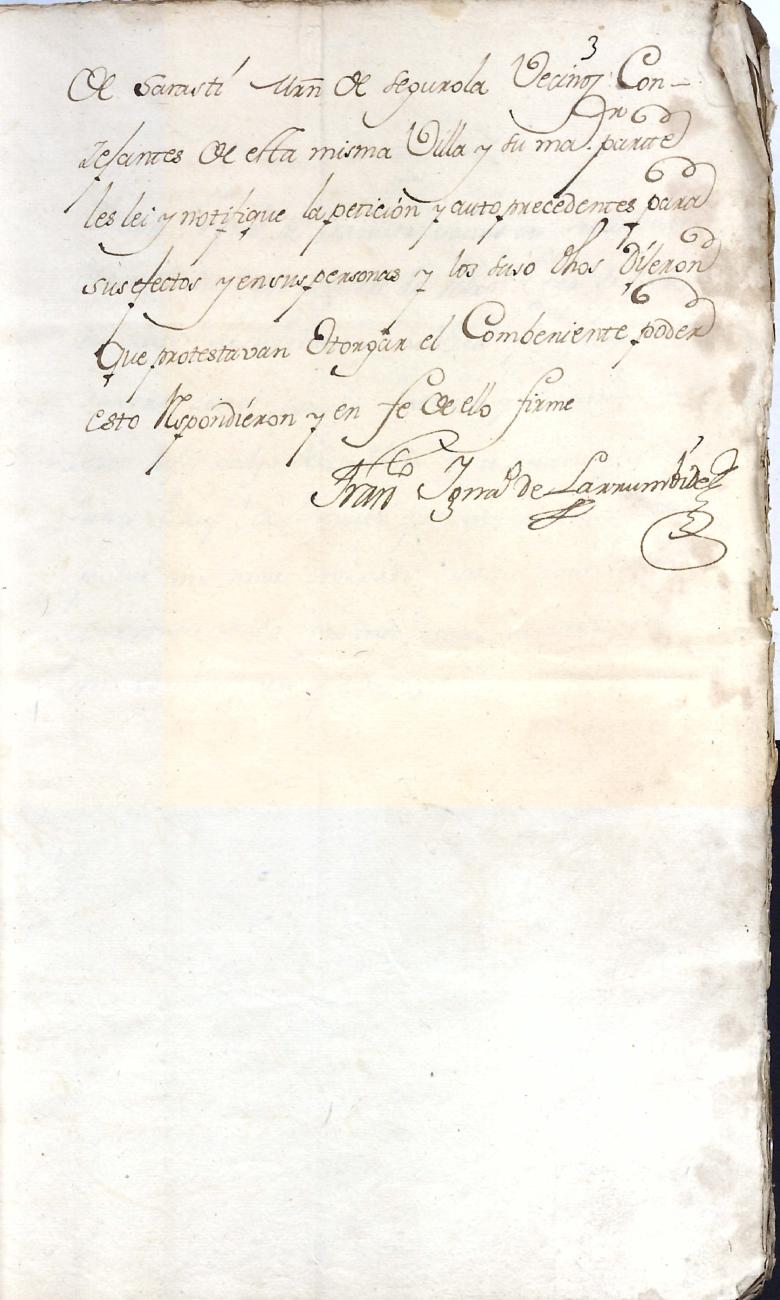 3
de Sarasti Mrn de Segurola Vecinos Con-
zesantes de esta misma Villa y su maor parte
les lei y notifique la peticion y auto precedentes para
sus efectos y en sus personas y los suso dhos Dijeron
Que protestavan Otorgar el Combeniente poder
esto Respondieron y en fe de ello firme
Franco Ignao de Larrumbide